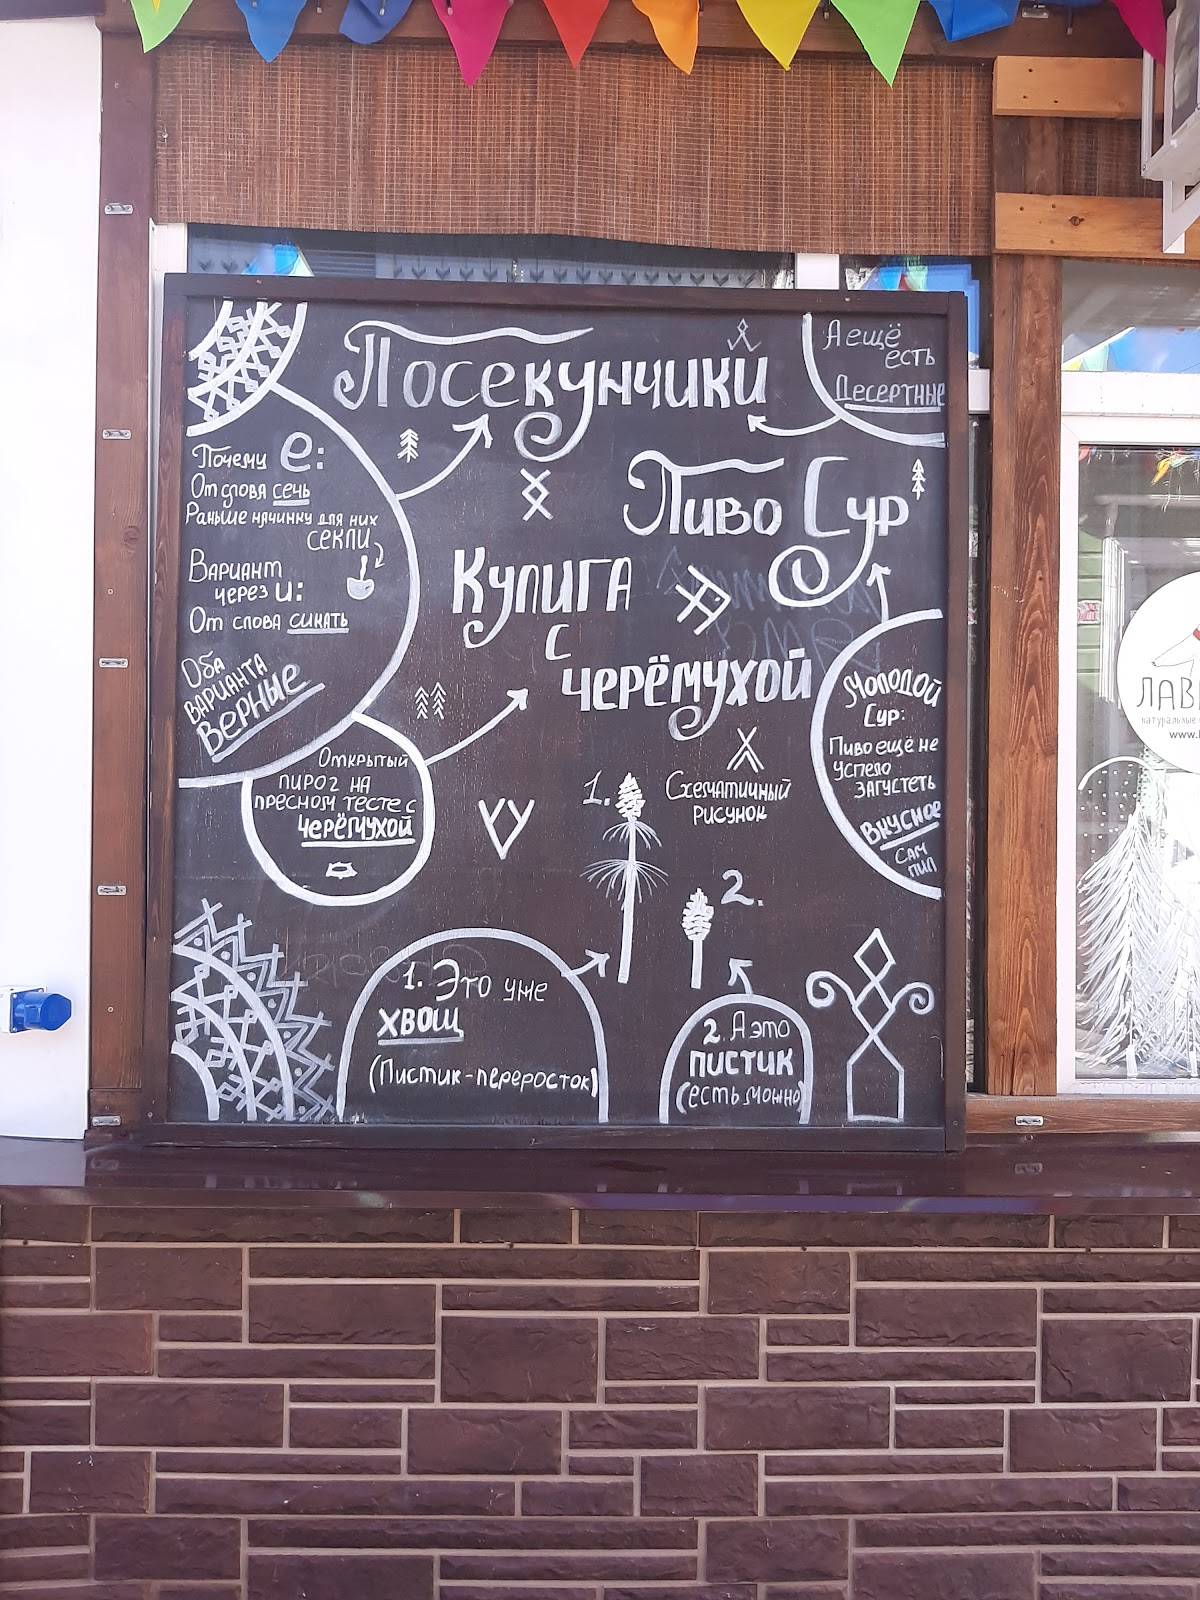 Посекунчики
А ещё
есть
Десертные
Почему е:
От слова сечь
Раньше начинку для них
секли
Вариант
через и:
От слова сикать
Оба
варианта
верные
Пиво Сур
Кулига
с
черёмухой
Молодой
Сур:
Пиво ещё не
успело
загустеть
Вкусное
Сам
пил
Открытый
пирог на
пресном тесте с
черёмухой
1.
Схематичный
рисунок
2.
1. Это уже
хвощ
(Пистик-переросток)
2. А это
пистик
(есть можно)
ЛАВ
натуральные
www.